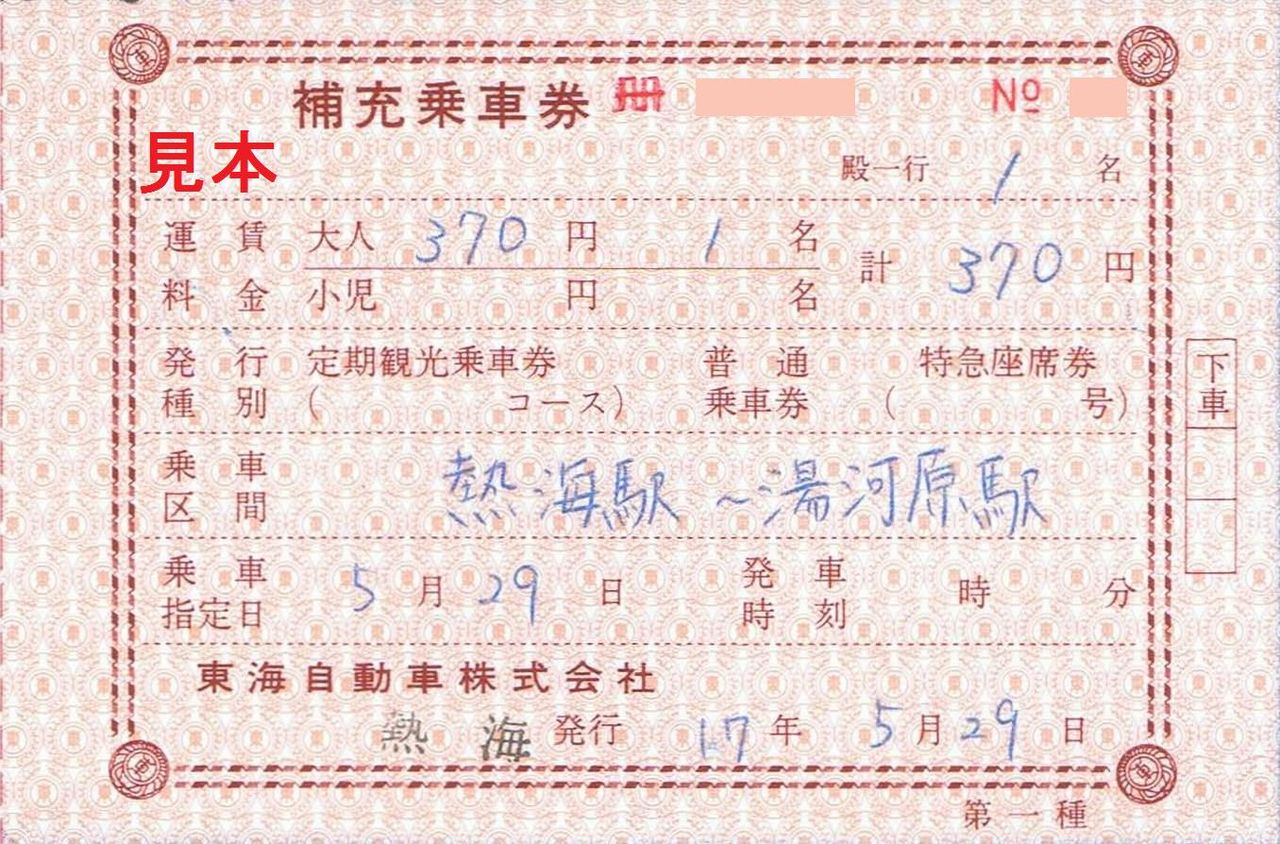 補充乗車券 冊 №
見本
殿一行 1 名
運賃 大人 370 円 1 名 計 370 円
料金 小児 円 名
発行 定期観光乗車券 普通 特急座席券
種別 ( コース) 乗車券 ( 号)
下車
乗車
区間 熱海駅~湯河原駅
乗車 5月29日 発車 時 分
指定日 時刻
東海自動車株式会社
熱海 発行 17年 5月29日
第一種